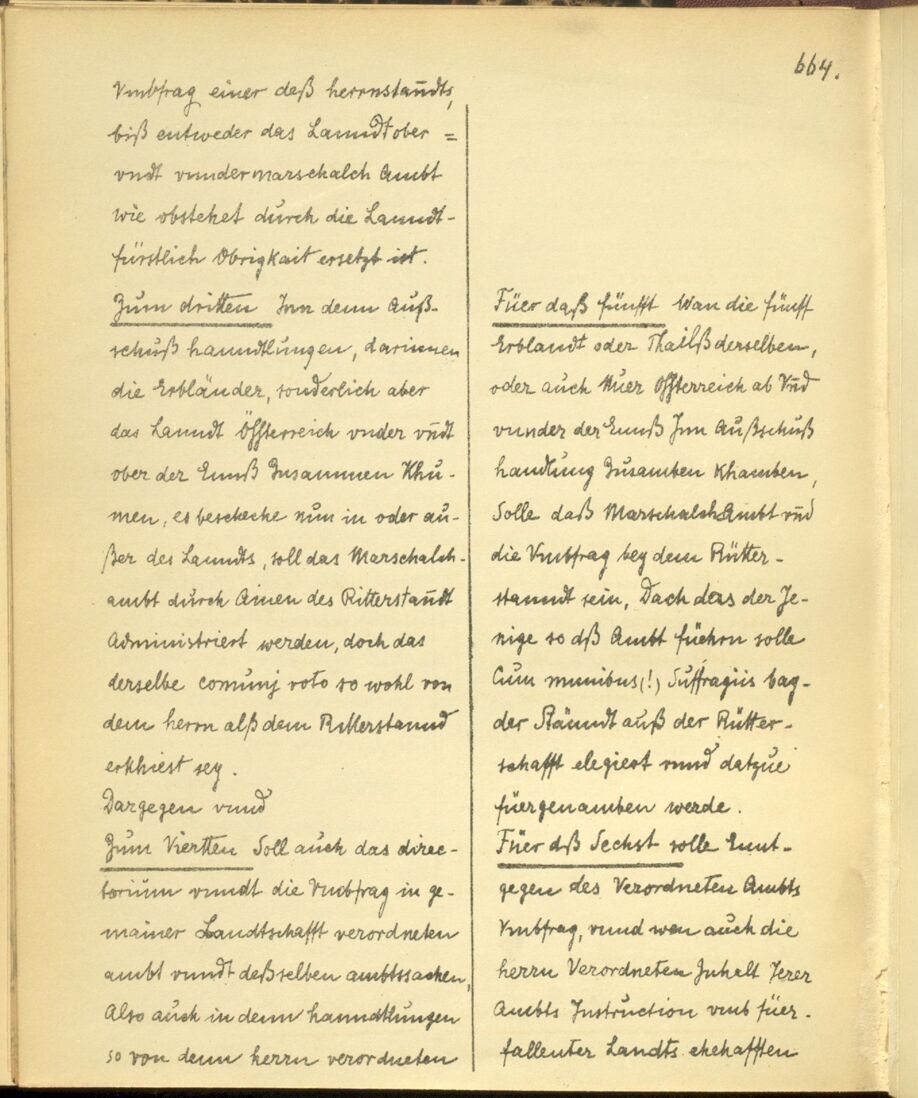 664.
Vmbfrag einer deß herrnstanndts,
biß entweder das Lanndt ober =
vndt vnndermarschalch Ambt
wie obstehet durch die Lanndt-
fürstlich Obrigkait ersetzt ist.
Zum dritten Inn denn Auß-
schuß hanndtlungen, darinnen
die Erbländer, sonderlich aber
das Lanndt Össterreich vnder vndt
ober der Ennß Zusammen Khu-
men, es beschehe nun in oder au-
ßer des Lanndts, soll das Marschalch-
ambt durch Ainen des Ritterstanndt
Administriert werden, doch das
derselbe comunj voto so wohl von
dem herrn alß dem Ritterstannd
erkhiest sey.
Dargegen vnnd
Zum Viertten Soll auch das direc-
torium vnndt die Vmbfrag in ge-
mainer Landtschafft verordneten
ambt vnndt deßselben ambtssachen,
Also auch in denn hanndtlungen
so von denn herrn verordneten
Füer daß fünfft Wan die fünff
Erblandt oder Thailß derselben,
oder auch Nuer Össterreich ob Vnd
vnnder der Ennß Inn Außschuß
handlung Zusamben Khamben,
Solle daß Marschalch Ambt vnd
die Vmbfrag bey dem Rütter-
stanndt sein, Doch das der Je-
nige so dß Ambt füehrn solle
Cum munibus (!) Suffragiis bay-
der Stänndt auß der Rütter-
schafft elegiert vnnd datzue
füergenamben werde.
Füer dß Sechst solle Ennt-
gegen des Verordneten Ambts
Vmbfrag, vnnd wan auch die
herrn Verordneten Inhalt Jerer
Ambts Instruction vmb füer-
fallenter Landts ehehafften